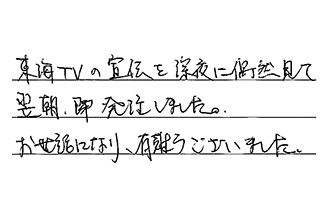 東海TVの宣伝を深夜に偶然見て
翌朝、即発注しました。
お世話になり、有難うございました。